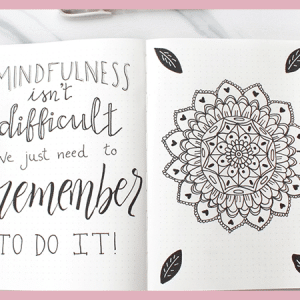 MINDFULNESS
isn't
difficult
we just need to
remember
TO DO IT!